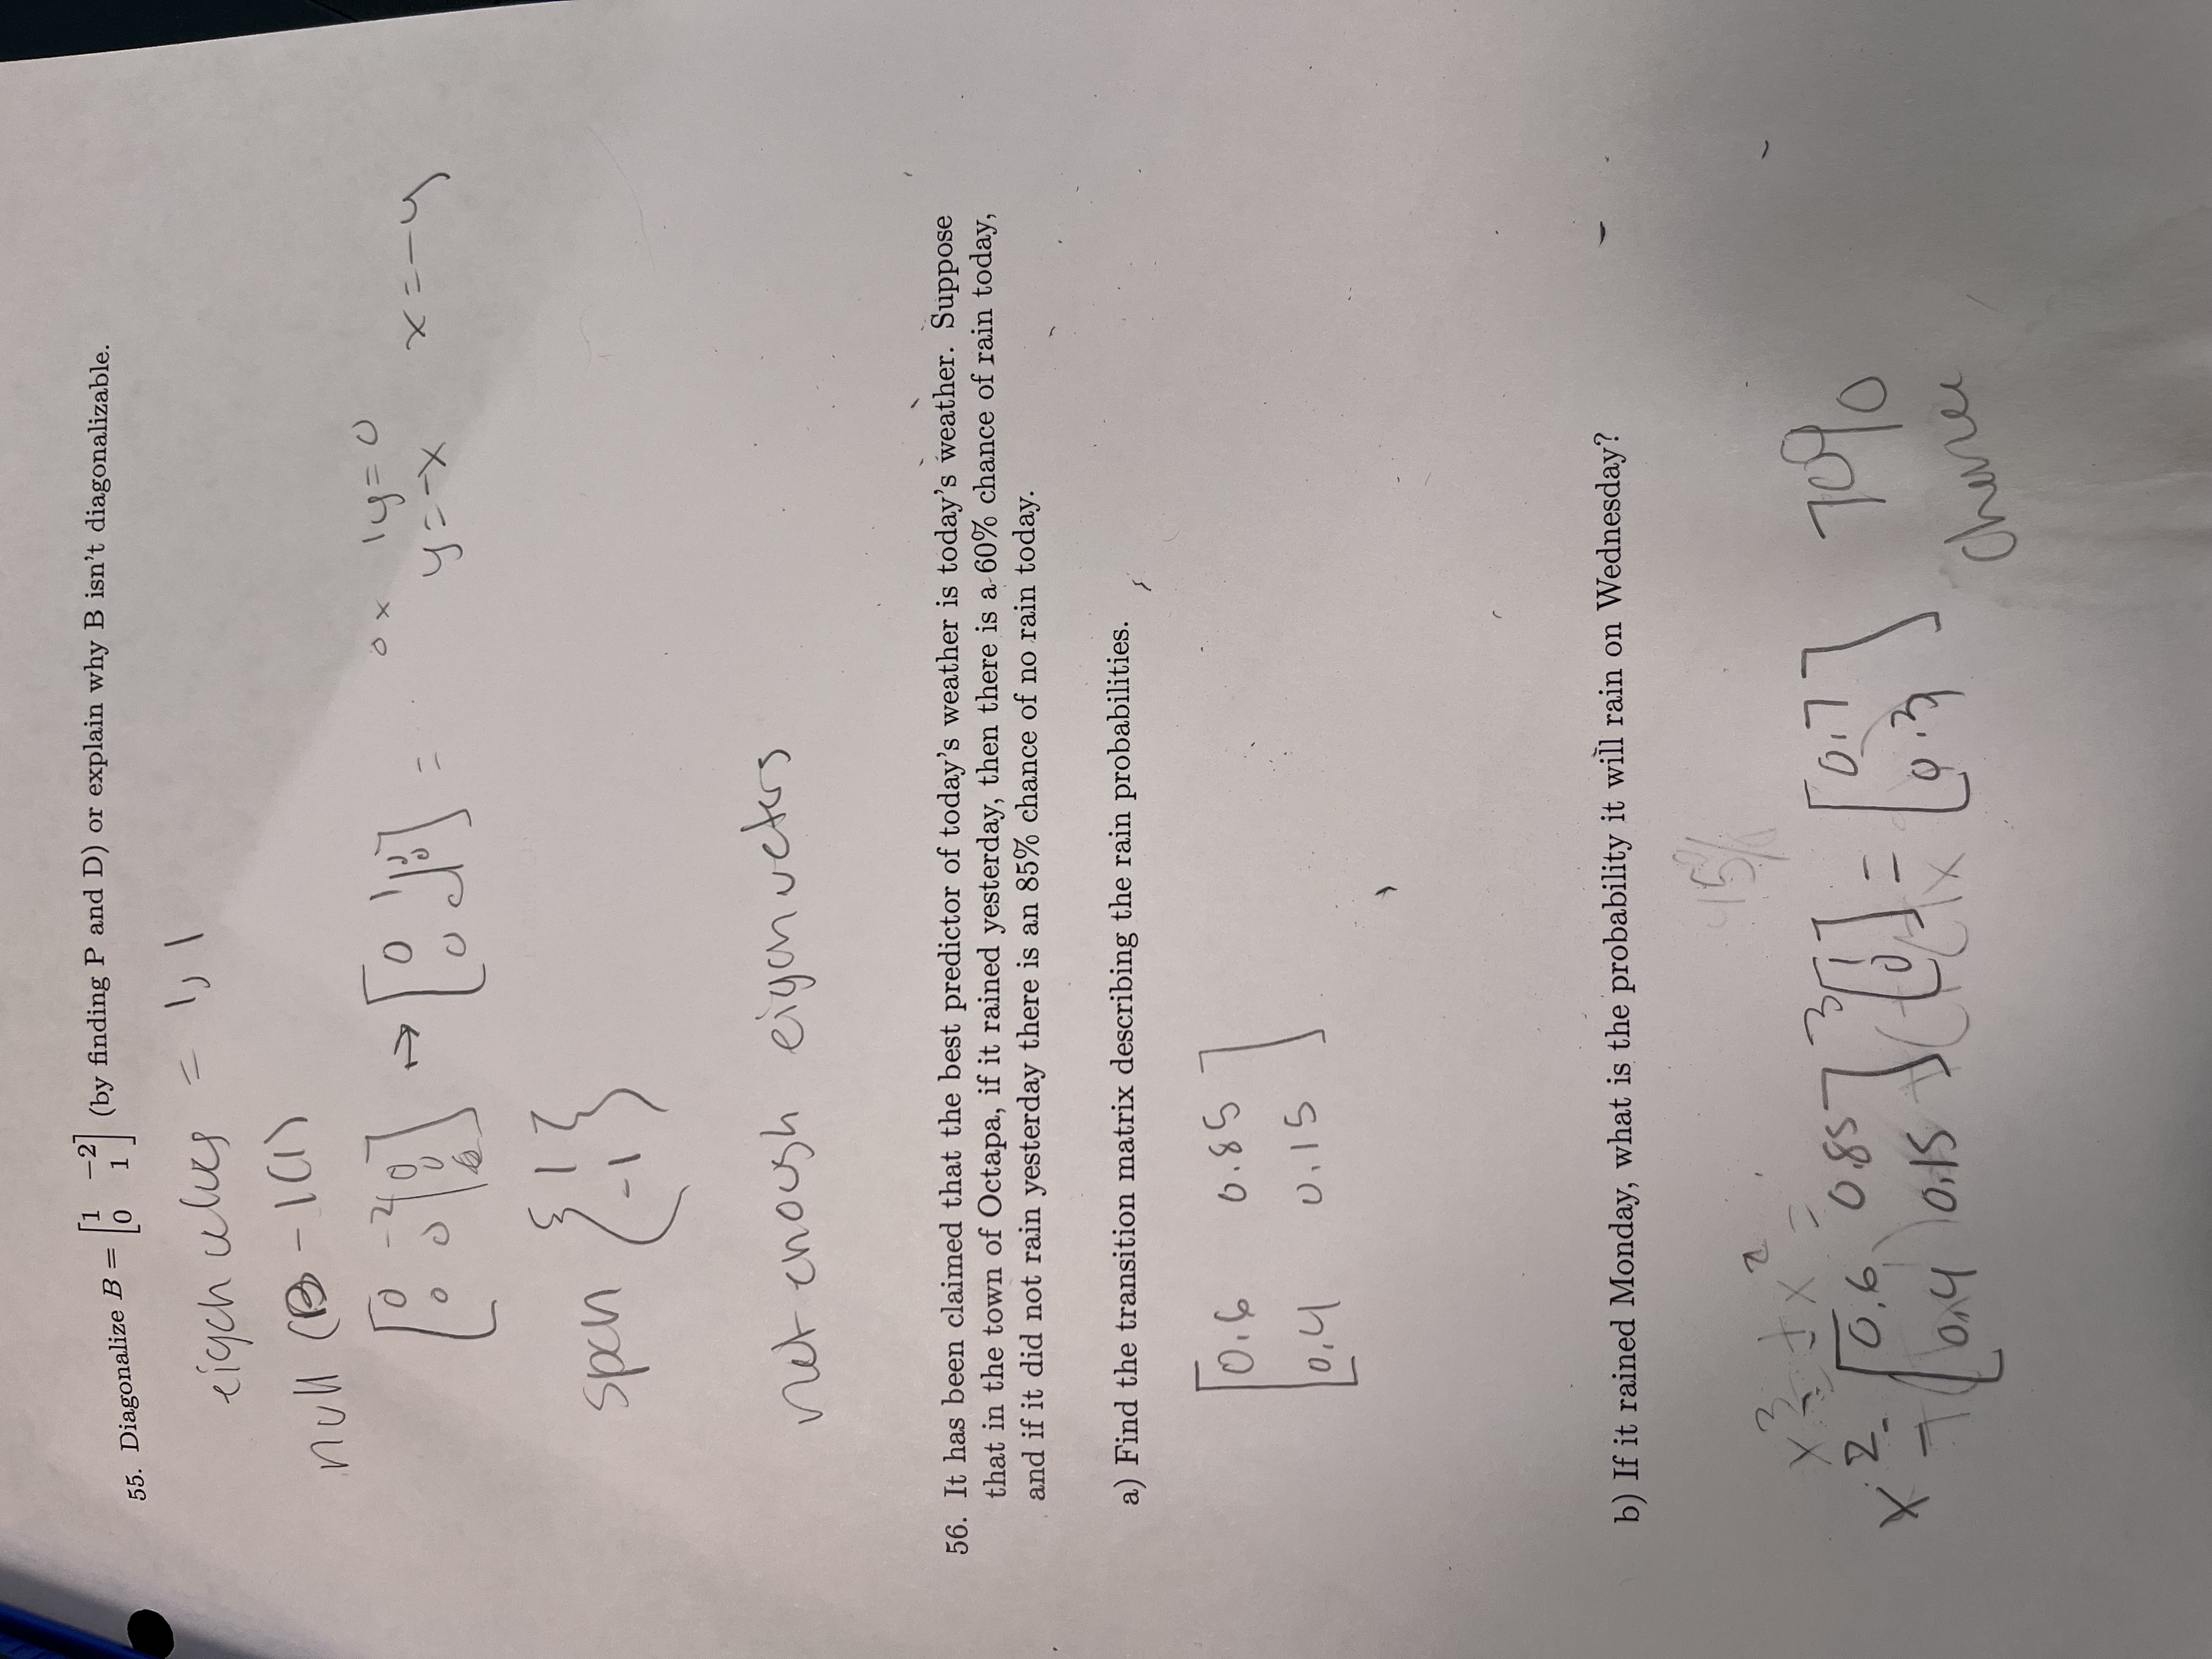 55. Diagonalize B = [1 -2; 0 1] (by finding P and D) or explain why B isn't diagonalizable.
eigenvalues = 1, 1
null (B - 1(1)
[0 -2 | 0; 0 0 | 0] → [0 1 | 0; 0 0 | 0] = 0x 1y = 0
y = -x x = -y
span {1; -1}
not enough eigenvectors
56. It has been claimed that the best predictor of today's weather is today's weather. Suppose
that in the town of Octapa, if it rained yesterday, then there is a 60% chance of rain today,
and if it did not rain yesterday there is an 85% chance of no rain today.
a) Find the transition matrix describing the rain probabilities.
[0.6 0.85
0.4 0.15]
b) If it rained Monday, what is the probability it will rain on Wednesday?
45%
x² =
[0.6 0.85; 0.4 0.15]³ [1; 0] = [0.7; 0.3] 70%
chance